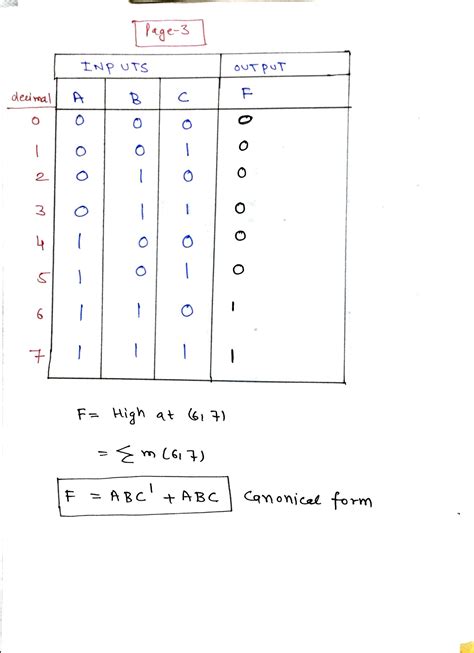 Page-3
INPUTS OUTPUT
decimal A B C F
0 0 0 0 0
1 0 0 1 0
2 0 1 0 0
3 0 1 1 0
4 1 0 0 0
5 1 0 1 0
6 1 1 0 1
7 1 1 1 1
F= High at (6,7)
= Σm(6,7)
F = ABC' + ABC Canonical form